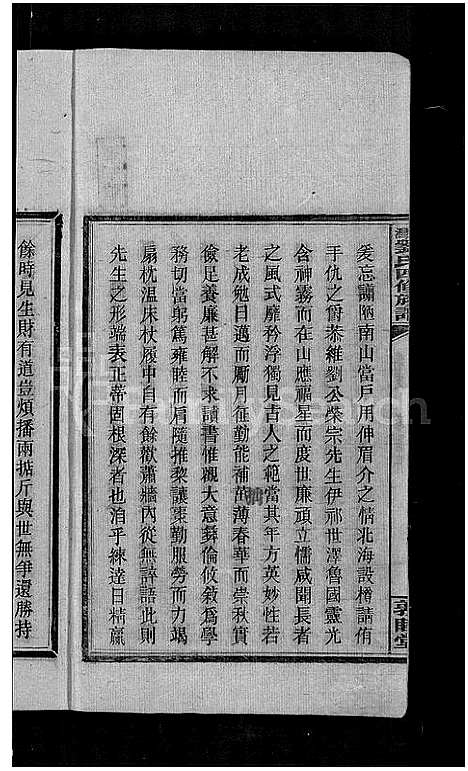 劉氏四修族譜
敦睦堂
爰忘謭陋南山當戶用伸眉介之情北海設樽請侑
手仇之爵恭維劉公榮宗先生伊祁世澤魯國靈光
含神霧而在山應福星而度世廉頑立懦咸聞長者
之風式靡矜浮獨見吉人之範當其年方英妙性若
老成勉日邁而勵月征勤能補茁薄春華而崇秋實
儉足養廉甚解不求讀書惟觀大意彝倫攸敘為學
務切當躬篤雍睦而肩隨推黎讓棗勤服勞而力竭
扇枕溫床杖履中自有餘歡蕭牆內從無誶語此則
先生之形端表正蒂固根深者也泊乎練達日精贏
餘時見生財有道豈煩播兩掂斤與世無爭還勝持
FamilySearch